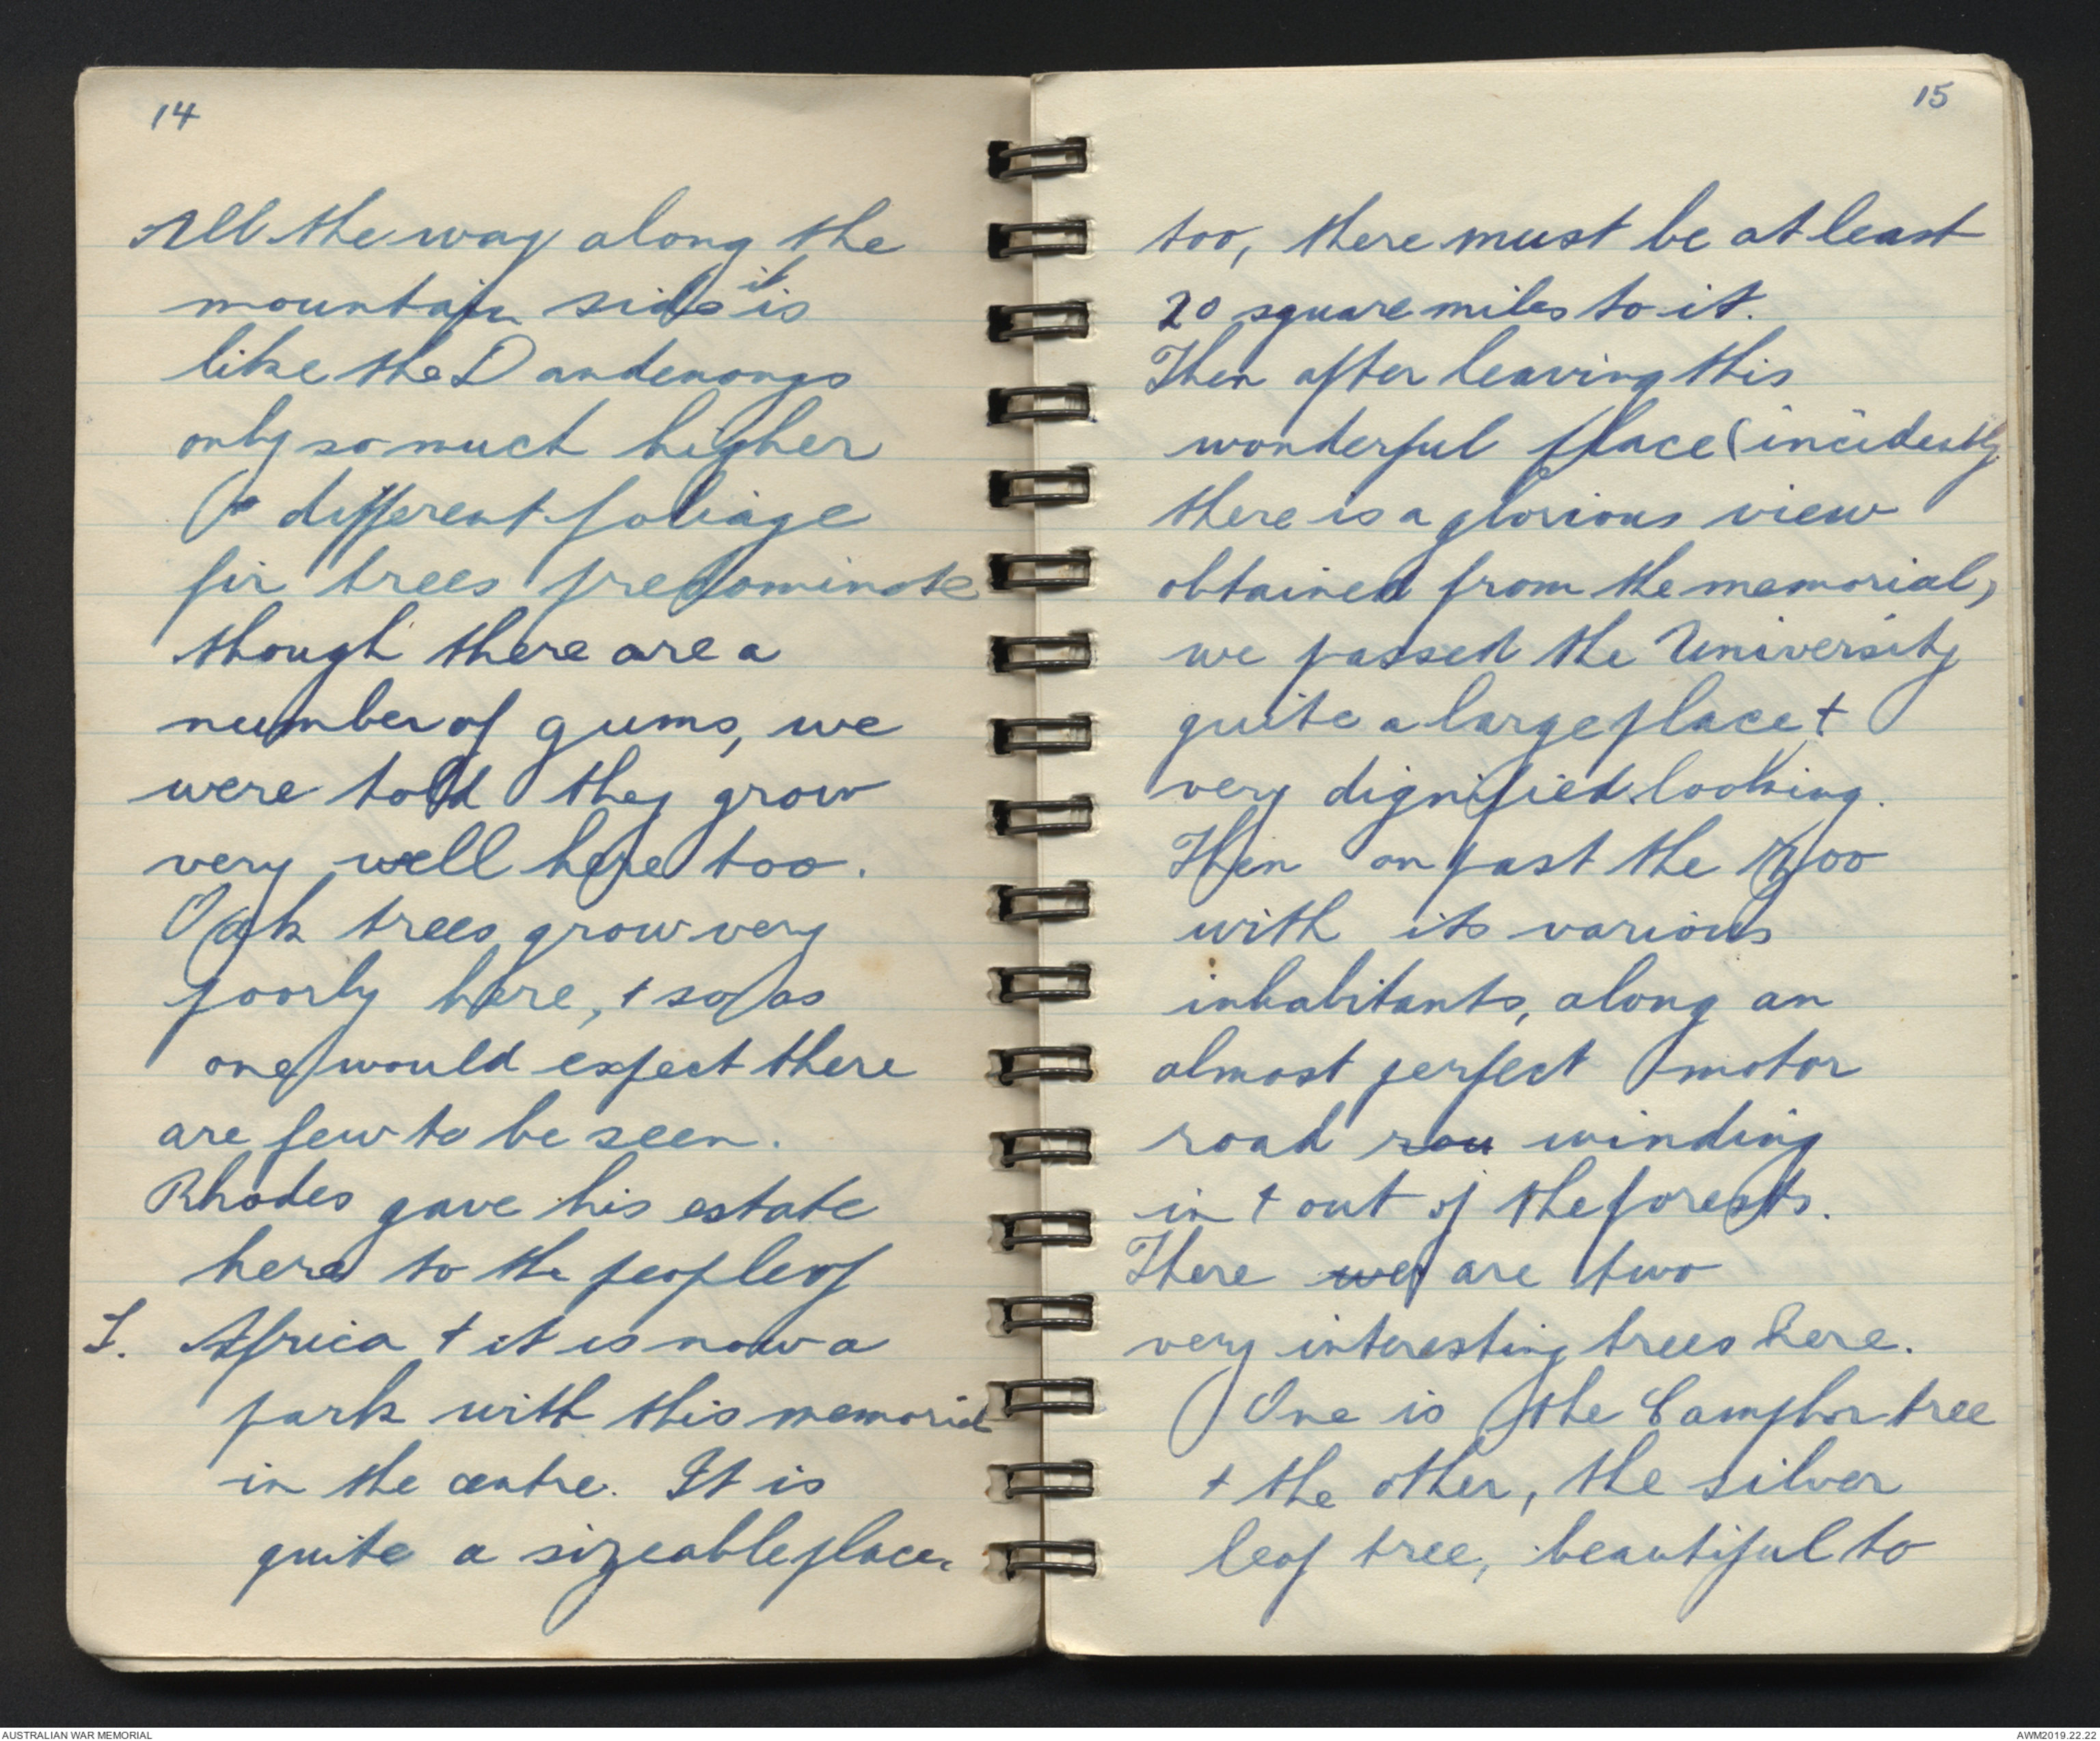 14
All the way along the
mountain side it is
like the Dandenongs
only so much higher
different foliage
fir trees predominate
though there are a
number of gums, we
were told they grow
very well here too.
Oak trees grow very
poorly here, + so as
one would expect there
are few to be seen.
Rhodes gave his estate
here to the people of
S. Africa + it is now a
park with this memorial
in the centre. It is
quite a sizeable place,
15
too, there must be at least
20 square miles to it.
Then after leaving this
wonderful place (incidently
there is a glorious view
obtained from the memorial)
we passed the University
quite a large place +
very dignified looking.
Then on past the Zoo
with its various
inhabitants, along an
almost perfect motor
road rou winding
in + out of the forests.
There we are two
very interesting trees here.
One is the Camphor tree
+ the other, the silver
leaf tree, beautiful to
AUSTRALIAN WAR MEMORIAL
AWM2019.22.22